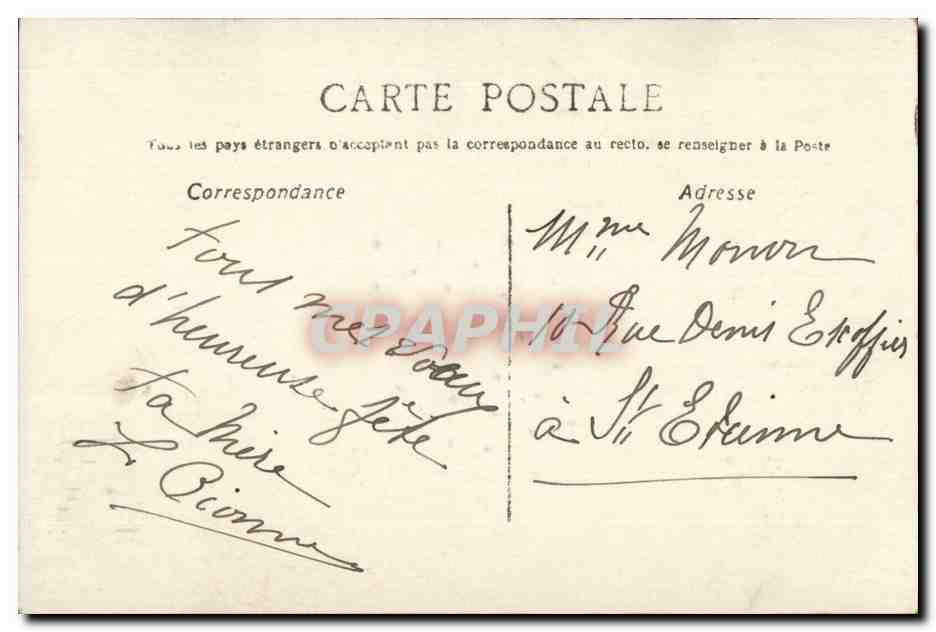 CARTE POSTALE
Tous les pays étrangers n'acceptent pas la correspondance au recto, se renseigner à la Poste
Correspondance
Adresse
tous mes voeux
d'heureuse fête
ta Mère
Mme Monon
10 Rue Denis Escoffier
à St Etienne
CPAPHIL